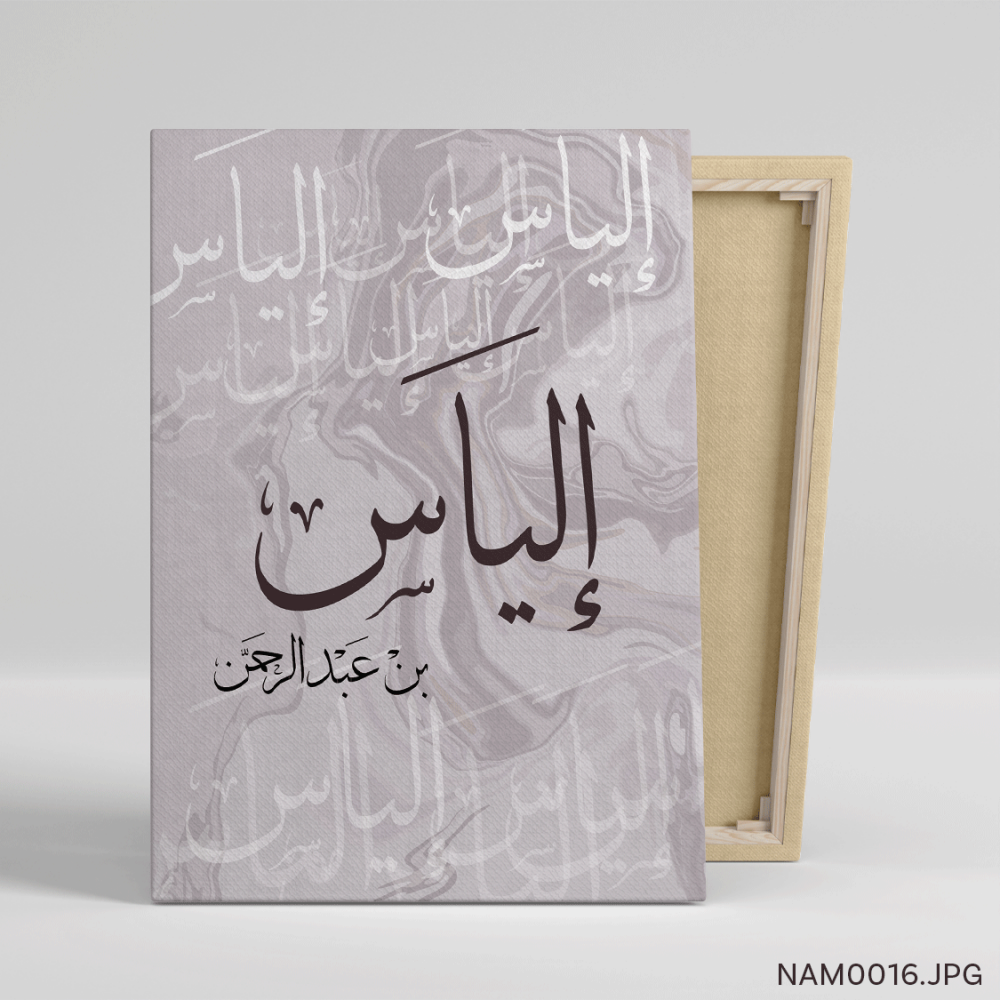 إلياس
بن عَبْدالرحمَّن
NAM0016.JPG